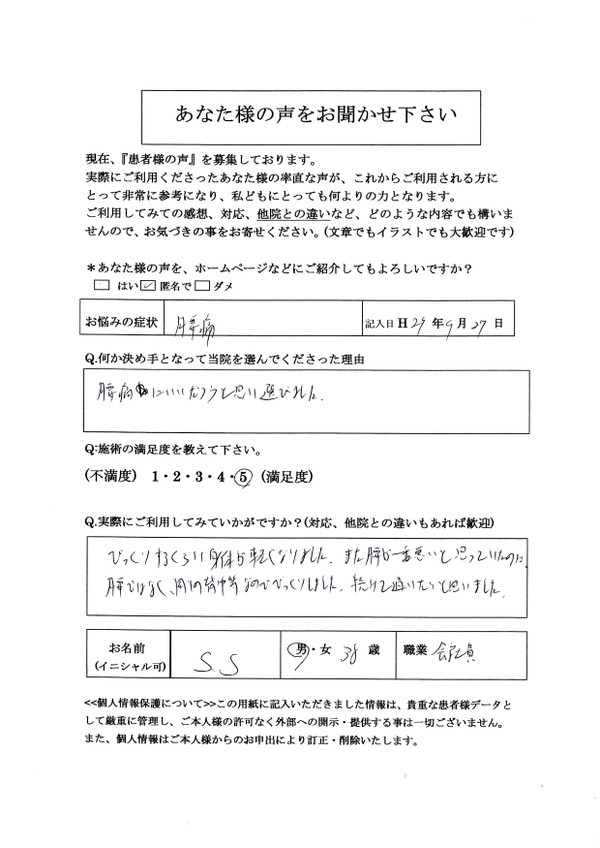 あなた様の声をお聞かせ下さい
現在、『患者様の声』を募集しております。
実際にご利用くださったあなた様の率直な声が、これからご利用される方に
とって非常に参考になり、私どもにとっても何よりの力となります。
ご利用してみての感想、対応、他院との違いなど、どのような内容でも構いま
せんので、お気づきの事をお寄せください。(文章でもイラストでも大歓迎です)
＊あなた様の声を、ホームページなどにご紹介してもよろしいですか？
□ はい ☑ 匿名で □ ダメ
お悩みの症状 腰痛 記入日 H 29 年 9 月 27 日
Q.何か決め手となって当院を選んでくださった理由
腰痛にいいだろうと思い選びました。
Q:施術の満足度を教えて下さい。
(不満度) 1・2・3・4・5 (満足度)
Q.実際にご利用してみていかがですか？(対応、他院との違いもあれば歓迎)
びっくりするくらい身体が軽くなりました。また腰が一番悪いと思っていたのに
腰ではなく、背中等なのでびっくりしました。続けて通いたいと思いました。
お名前 S.S 男・女 38 歳 職業 会社員
(イニシャル可)
<<個人情報保護について>>この用紙に記入いただきました情報は、貴重な患者様データと
して厳重に管理し、ご本人様の許可なく外部への開示・提供する事は一切ございません。
また、個人情報はご本人様からのお申出により訂正・削除いたします。